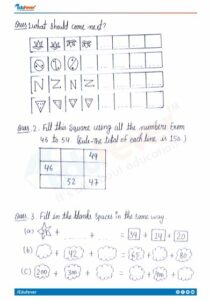 Eduhever
Ques1. What should come next?
N Z N Z
Ques. 2. Fill this square using all the numbers from
46 to 54 (Rule-the total of each line is 150.)
49
46
52 47
Ques. 3. Fill in the blanks spaces in the same way.
(a) + + = 34 + 24 + 20
(b) + 42 + = 65 + + 80
(c) 200 + 300 + = + 400 +